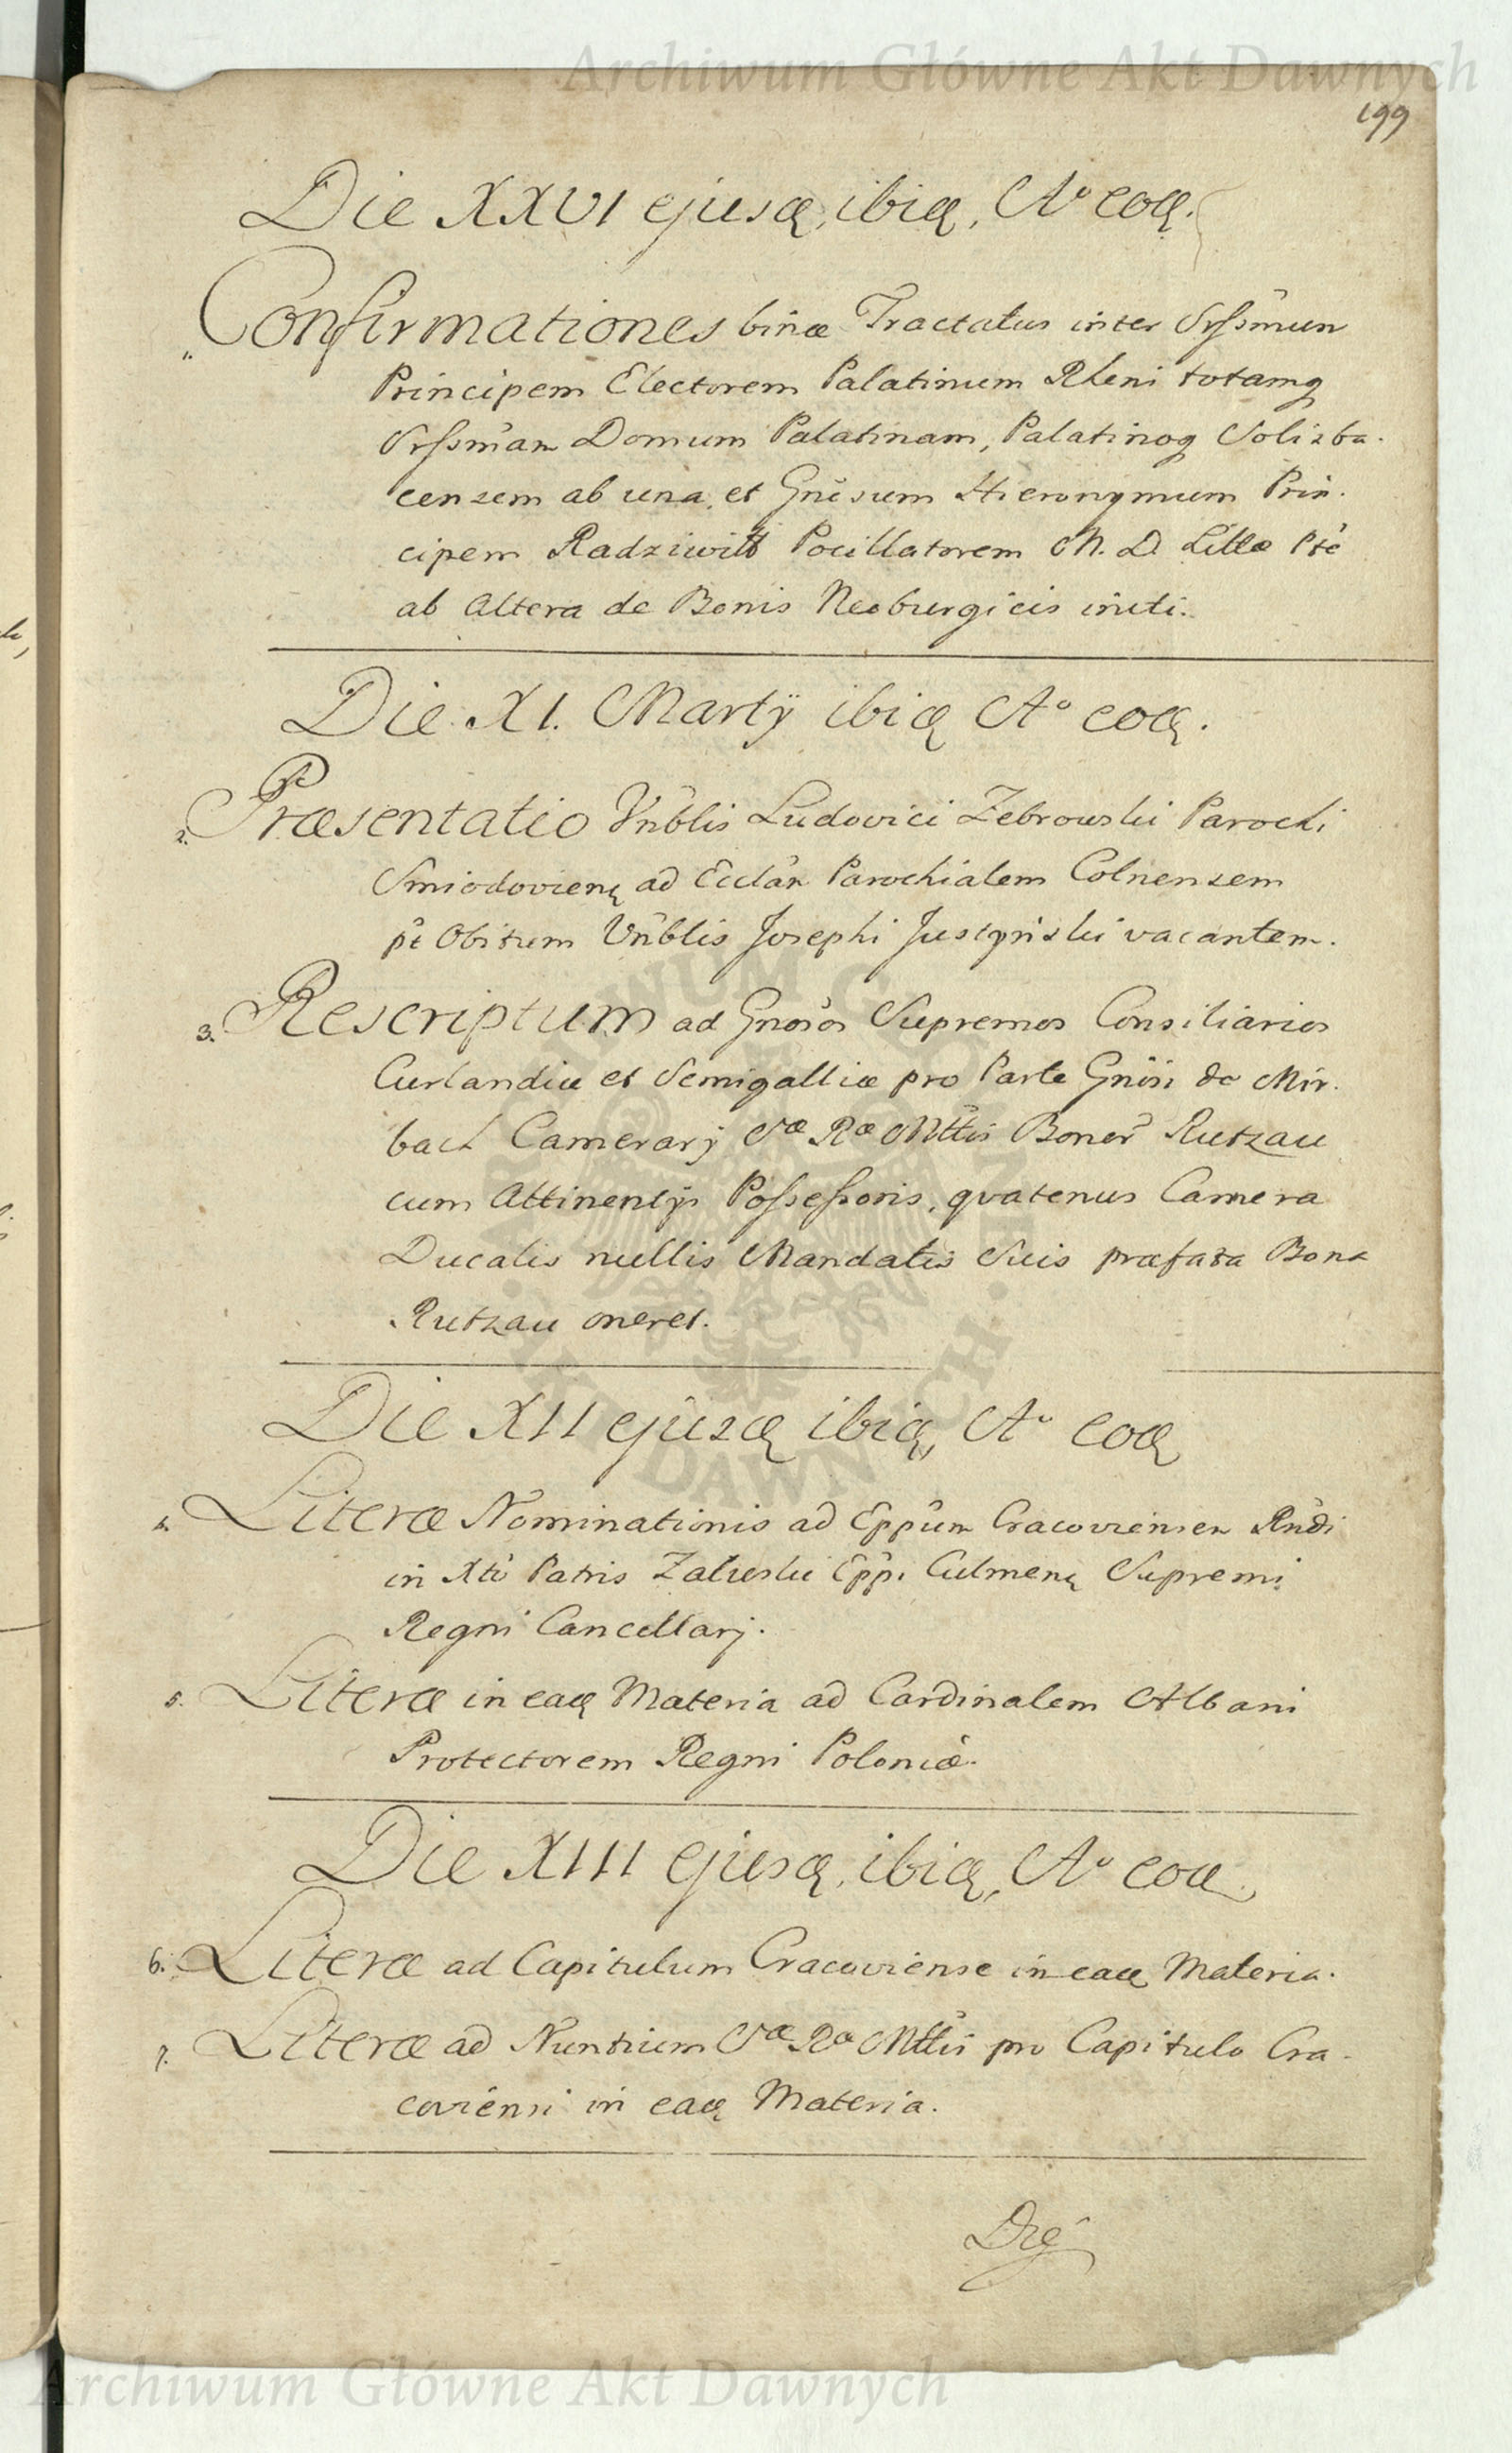 Archiwum Główne Akt Dawnych
199
Die XXVI ejusd, ibid, Aº eod.
1. Confirmationes binæ Tractatus inter Srssmum
Principem Electorem Palatinum Rheni totamq
Srssmam Domum Palatinam, Palatinoq Solizba-
censem ab una, et Gnösum Hieronymum Prin-
cipem Radziwiłł Pocillatorem M. D. Litt̃æ Pte
ab Altera de Bonis Neoburgicis initi.
Die XI. Martÿ ibid Aº eod.
2. Præsentatio Vñblis Ludovici Zebrowski Parochi
Smiodovienȩ ad Ecclãm Parochialem Colnensem
pt Obitum Vñblis Josephi Juscynski vacantem.
3. Rescriptum ad Gnosos Supremos Consiliarios
Curlandiæ et Semigalliæ pro Parte Gnosi de Mir-
bach Camerarj Sæ Ræ Mttis Bonor Rutzau
cum Attinentijs Possessoris, qvatenus Camera
Ducalis nullis Mandatis Suis præfata Bona
Rutzau oneret.
Die XII ejusd ibid, Aº eod
4. Literæ Nominationis ad Eppum Cracoviensem Rndi
in Xto Patris Zaluski Eppi Culmenȩ Supremi
Regni Cancellarj.
5. Literæ in ead Materia ad Cardinalem Albani
Protectorem Regni Poloniæ.
Die XIII ejusd, ibid, Aº eod.
6. Literæ ad Capitulum Cracoviense in ead Materia.
7. Literæ ad Nuntium Sæ Ræ Mttis pro Capitulo Cra-
coviensi in ead Materia.
Die
Archiwum Główne Akt Dawnych